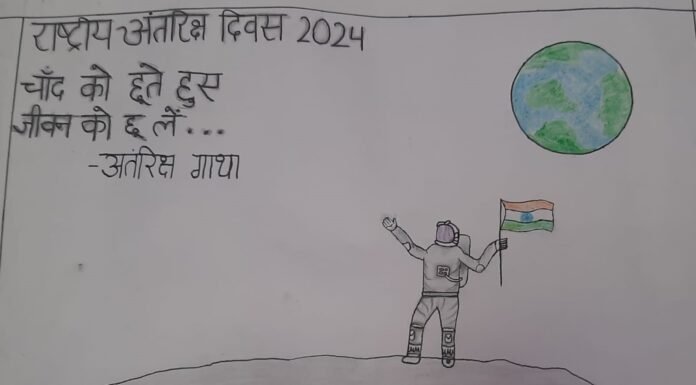 राष्ट्रीय अंतरिक्ष दिवस 2024
चाँद को छूते हुस
जीवन को छू लें...
-अतंरिक्ष गाथा